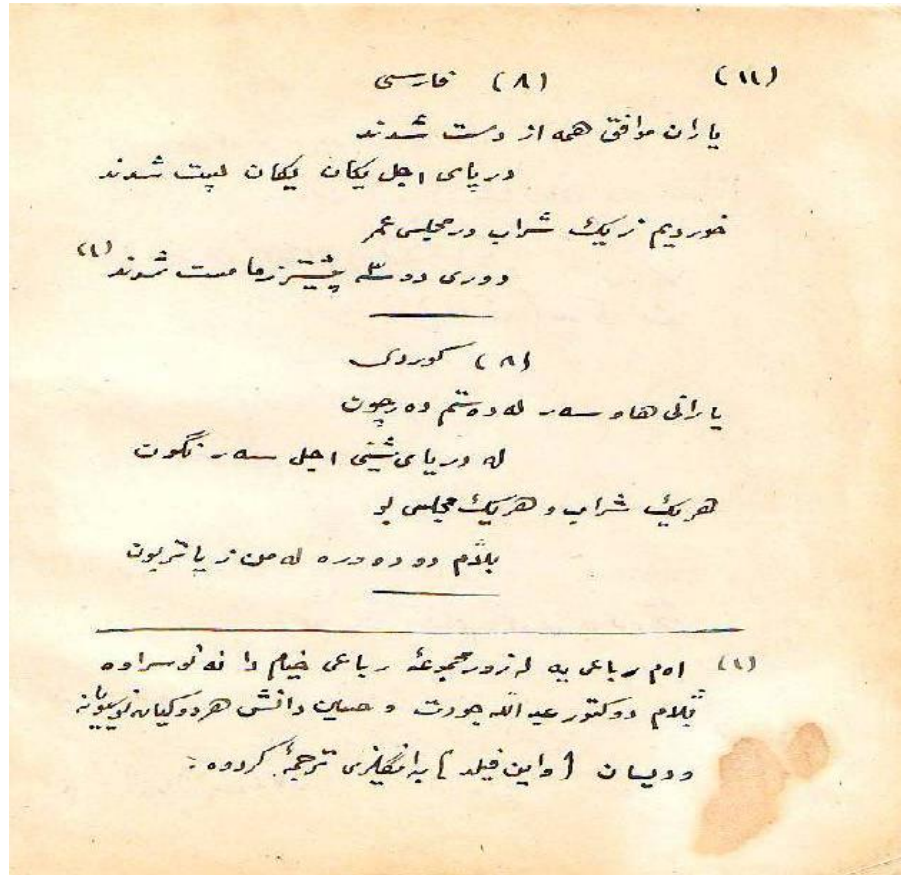 (١١) (٨) فارسی
یاران موافق همه از دست شدند
در پای اجل یکان یکان پست شدند
خوردیم ز یک شراب در مجلس عمر
دوری دو سه پیشتر ز ما مست شدند (١)
(٨) کوردی
یارانی هاوسەر لە دەستم دەرچوت
لە دریای شینی اجل سەر نگوت
هریک شراب و هریک مجلس بو
بلام دو دەورە لە من زیاتر بوت
(١) ئەم رباعی یە لە زور مجموعهٔ رباعی خیام دا نە نوسراوە
بلام دوکتور عبد اللە جودت و حسین دانش هردوکیان
وویسان [واین فیلد] بە انگلیزی ترجمهٔ کردوە :